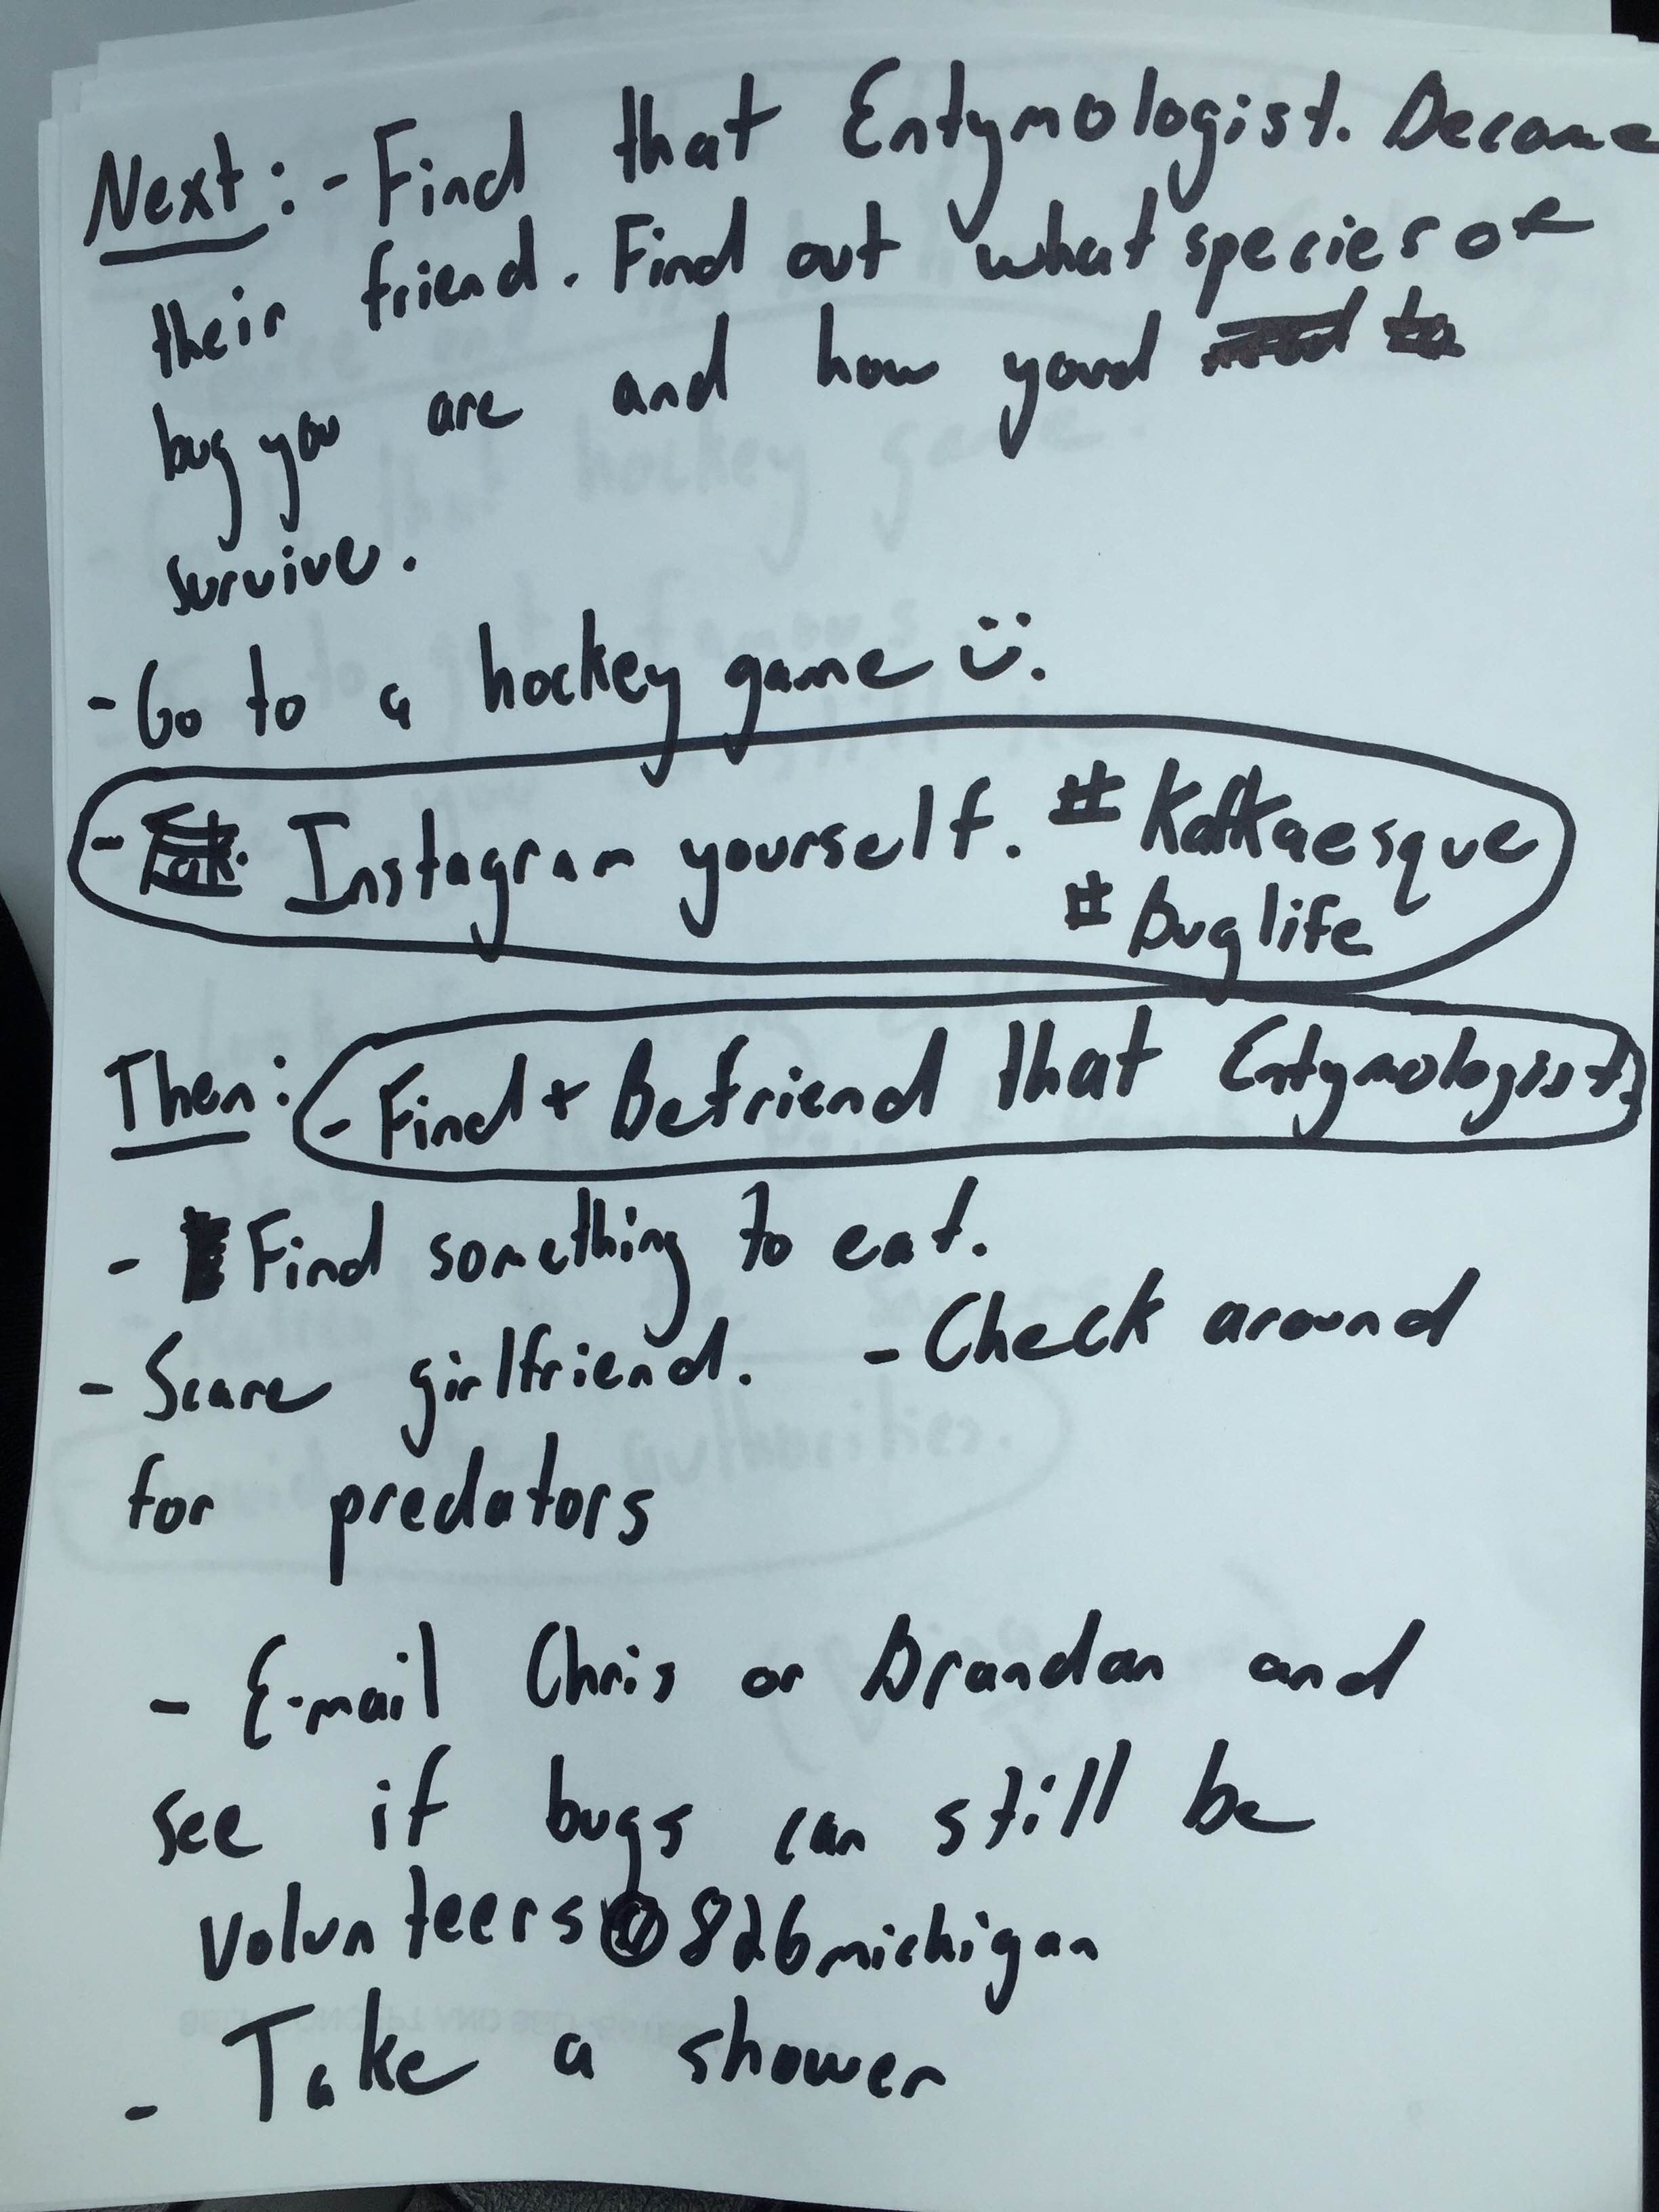 Next: - Find that Entymologist. Become
their friend. Find out what species of
bug you are and how youd
survive.
- Go to a hockey game :).
- Instagram yourself. #Kafkaesque
#Buglife
Then: - Find + Befriend that Entymologist.
- Find something to eat.
- Scare girlfriend. - Check around
for predators
- E-mail Chris or Brandan and
see if bugs can still be
volunteers @ 826michigan
- Take a shower